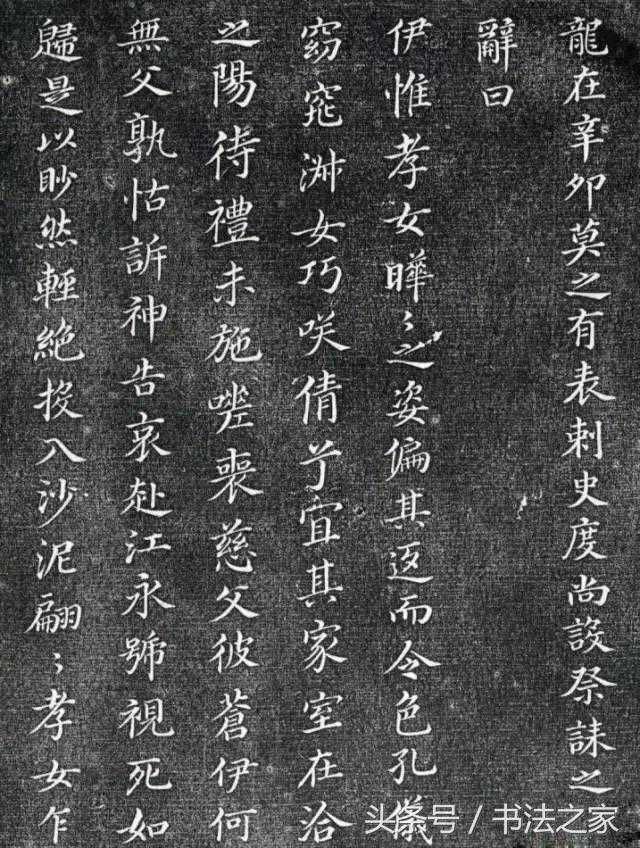 龍在辛卯莫之有表刺史度尚設祭誄之
辭曰
伊惟孝女曄〻之姿偏其返而令色孔儀
窈窕淑女巧咲倩兮宜其家室在洽
之陽待禮未施嗟喪慈父彼蒼伊何
無父孰怙訴神告哀赴江永號視死如
歸是以眇然輕絶投入沙泥翩〻孝女乍
头条号 / 书法之家